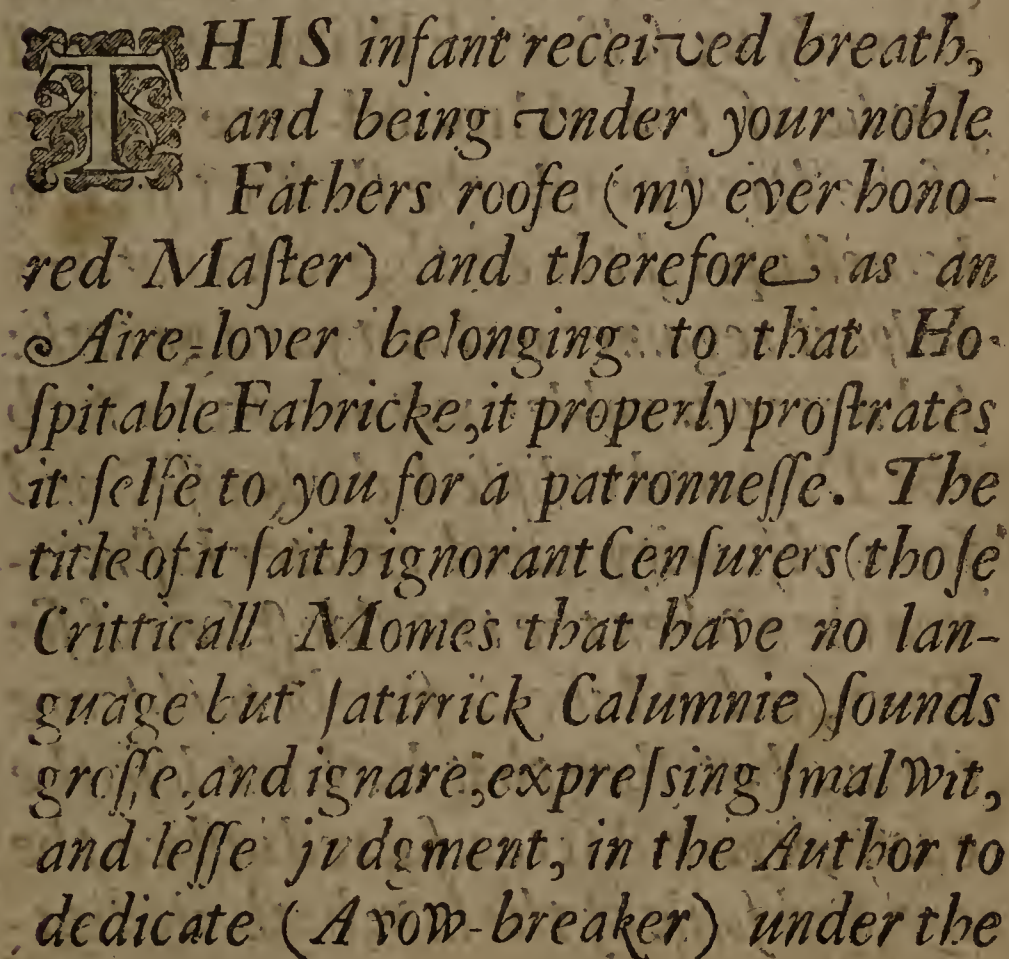 THIS infant received breath,
and being vnder your noble
Fathers roofe (my ever hono-
red Maſter) and therefore as an
Aire-lover belonging to that Ho-
ſpitable Fabricke, it properly proſtrates
it ſelfe to you for a patronneſſe. The
title of it ſaith ignorant Cenſurers (thoſe
Critticall Momes that have no lan-
guage but ſatirrick Calumnie) ſounds
groſſe, and ignare, expreſsing ſmal wit,
and leſſe jvdgment, in the Author to
dedicate (A vow-breaker) under the